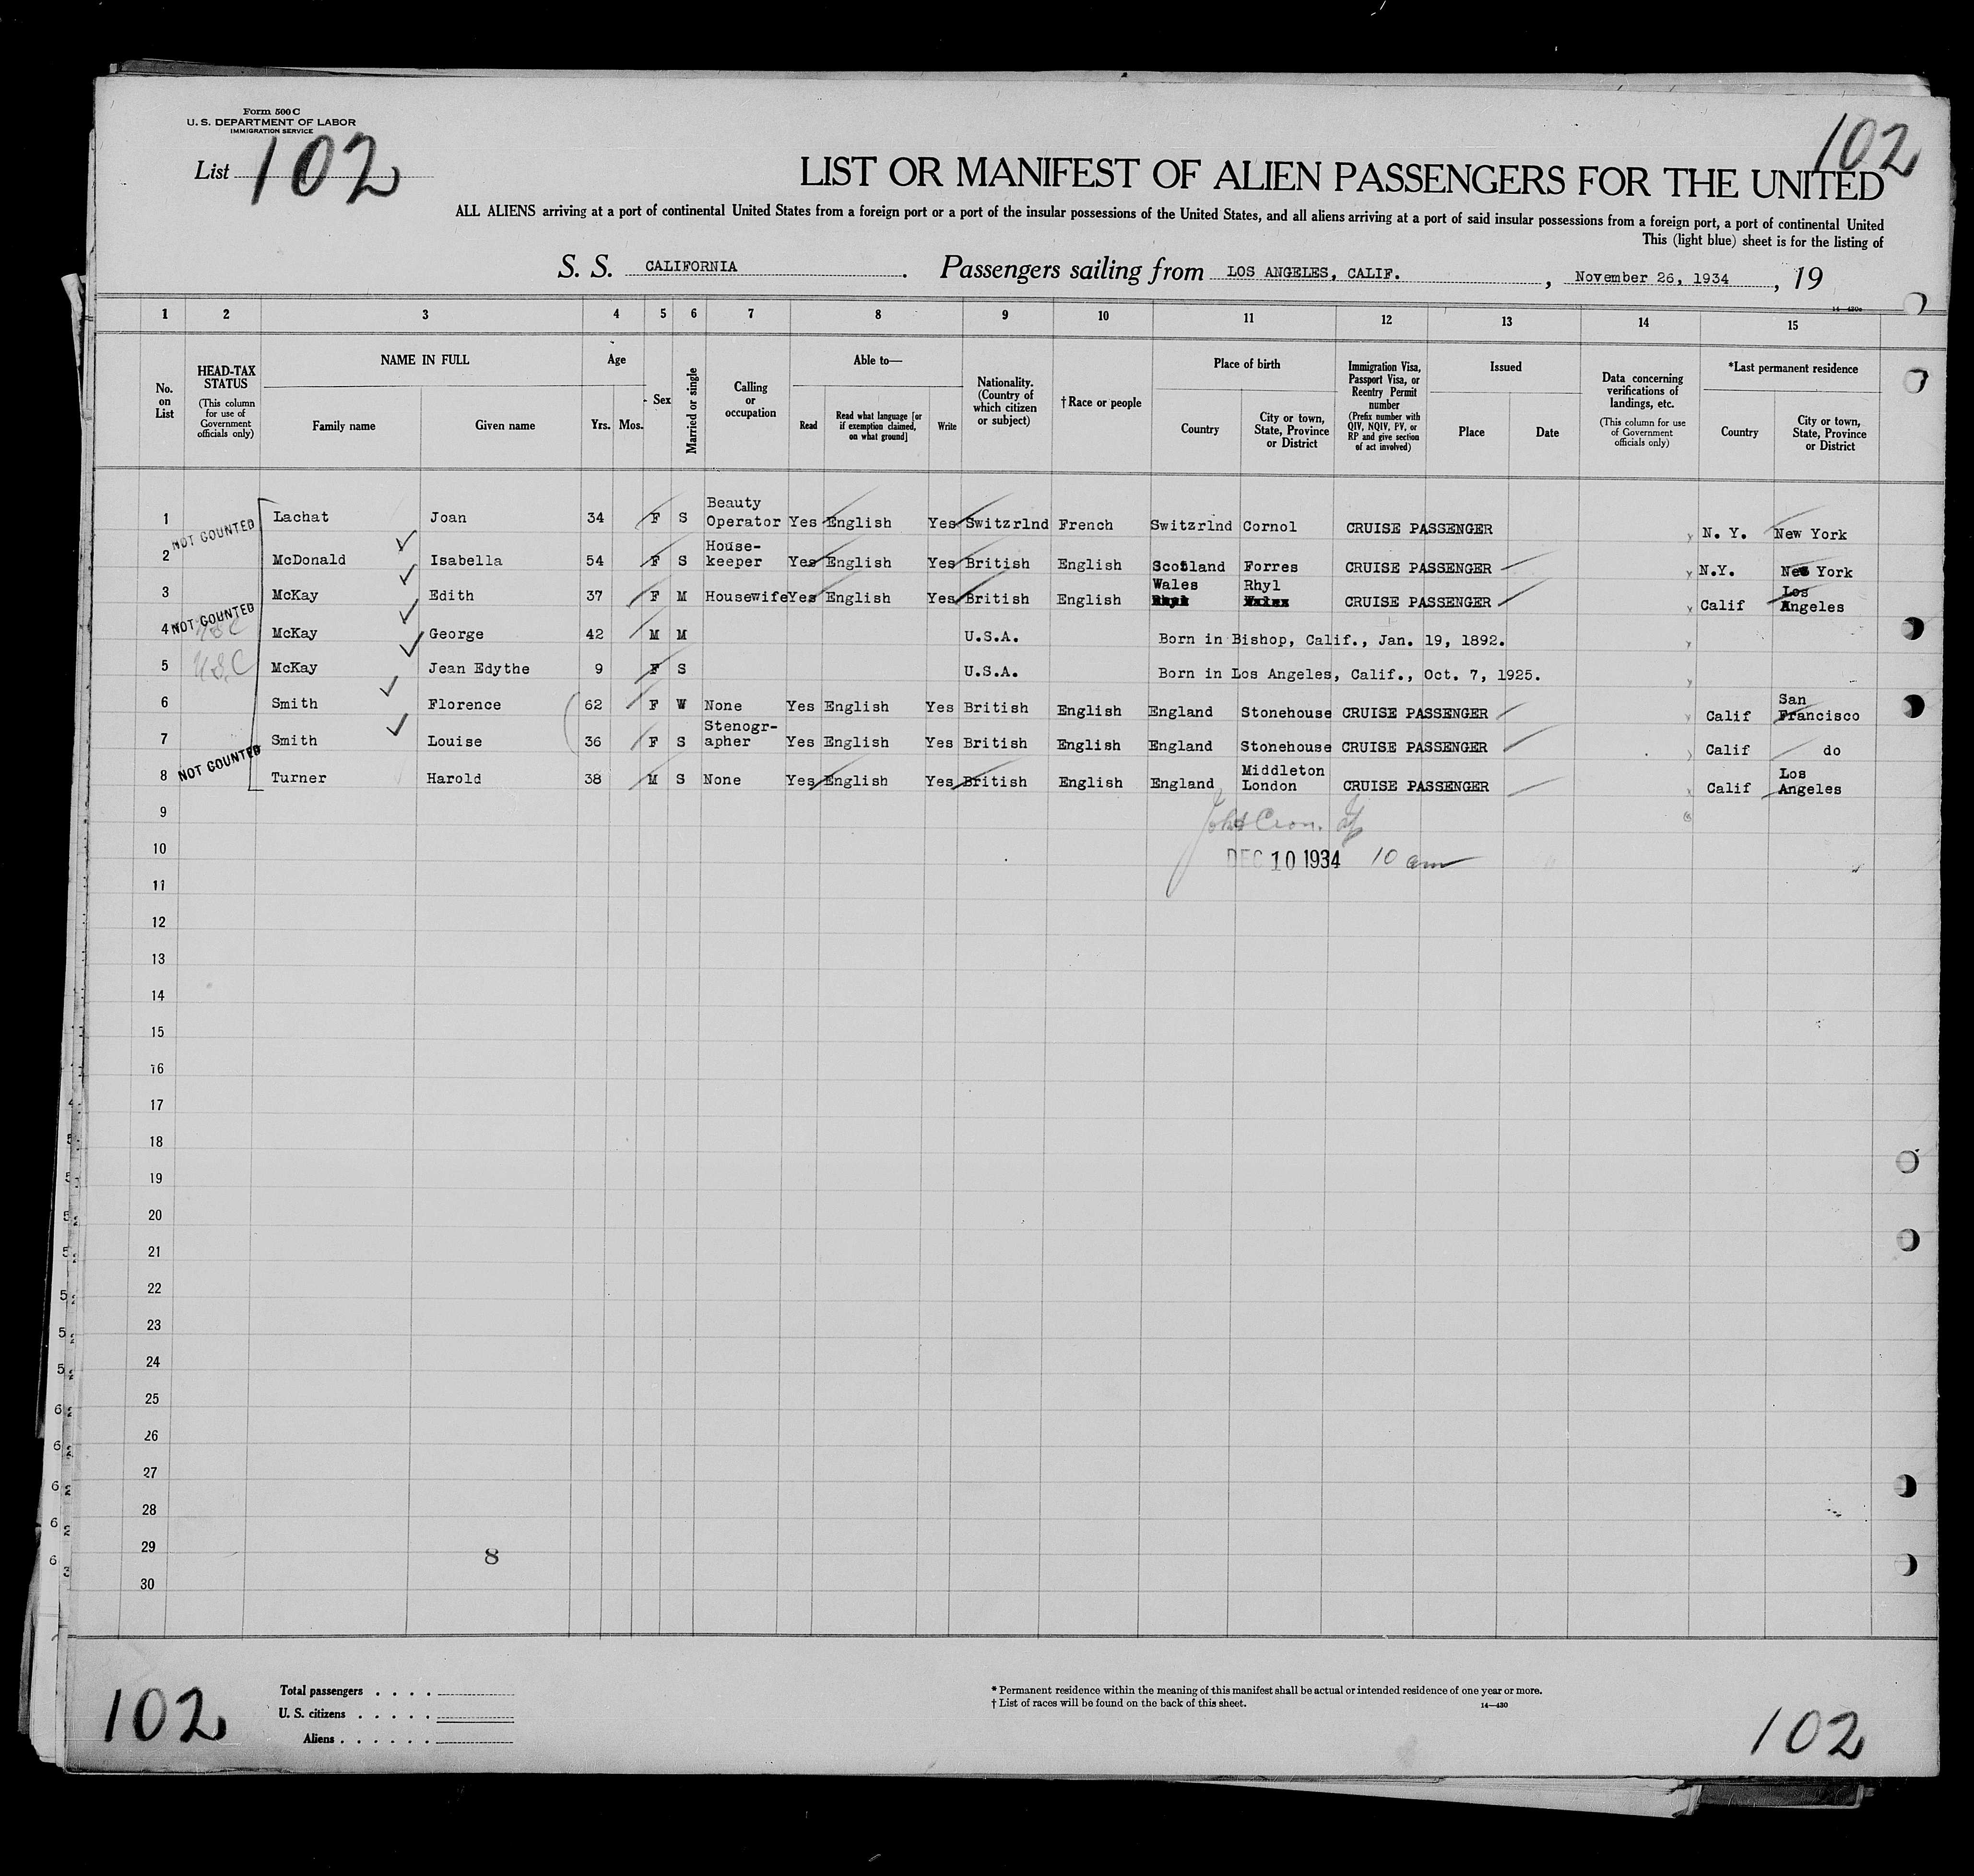 Form 500 C
U. S. DEPARTMENT OF LABOR
IMMIGRATION SERVICE
List 102
102
LIST OR MANIFEST OF ALIEN PASSENGERS FOR THE UNITED
ALL ALIENS arriving at a port of continental United States from a foreign port or a port of the insular possessions of the United States, and all aliens arriving at a port of said insular possessions from a foreign port, a port of continental United
This (light blue) sheet is for the listing of
S. S. CALIFORNIA. Passengers sailing from LOS ANGELES, CALIF., November 26, 1934, 19
14—430c
1 2 3 4 5 6 7 8 9 10 11 12 13 14 15
No. on List
HEAD-TAX STATUS (This column for use of Government officials only)
NAME IN FULL Family name Given name
Age Yrs. Mos.
Sex
Married or single
Calling or occupation
Able to— Read Read what language [or if exemption claimed, on what ground] Write
Nationality. (Country of which citizen or subject)
†Race or people
Place of birth Country City or town, State, Province or District
Immigration Visa, Passport Visa, or Reentry Permit number (Prefix number with QIV, NQIV, PV, or RP and give section of act involved)
Issued Place Date
Data concerning verifications of landings, etc. (This column for use of Government officials only)
*Last permanent residence Country City or town, State, Province or District
1 NOT COUNTED Lachat Joan 34 F S Beauty Operator Yes English Yes Switzrlnd French Switzrlnd Cornol CRUISE PASSENGER N. Y. New York
2 McDonald Isabella 54 F S House-keeper Yes English Yes British English Scotland Forres CRUISE PASSENGER N.Y. New York
3 McKay Edith 37 F M Housewife Yes English Yes British English Wales Rhyl CRUISE PASSENGER Calif Los Angeles
4 NOT COUNTED USC McKay George 42 M M U.S.A. Born in Bishop, Calif., Jan. 19, 1892.
5 USC McKay Jean Edythe 9 F S U.S.A. Born in Los Angeles, Calif., Oct. 7, 1925.
6 Smith Florence 62 F W None Yes English Yes British English England Stonehouse CRUISE PASSENGER Calif San Francisco
7 Smith Louise 36 F S Stenogr-apher Yes English Yes British English England Stonehouse CRUISE PASSENGER Calif do
8 NOT COUNTED Turner Harold 38 M S None Yes English Yes British English England Middleton London CRUISE PASSENGER Calif Los Angeles
9
10 DEC 10 1934 10 am
11
12
13
14
15
16
17
18
19
20
21
22
23
24
25
26
27
28
29 8
30
102
Total passengers
U. S. citizens
Aliens
* Permanent residence within the meaning of this manifest shall be actual or intended residence of one year or more.
† List of races will be found on the back of this sheet.
14—430
102